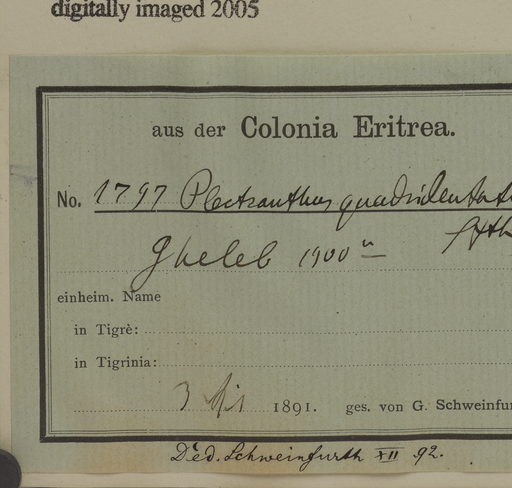 digitally imaged 2005
aus der Colonia Eritrea.
No. 1797 Plectranthus quadridentat
Gheleb 1900 m
einheim. Name
in Tigrè:
in Tigrinia:
3 1891. ges. von G. Schweinfu
Ded. Schweinfurth XII 92.